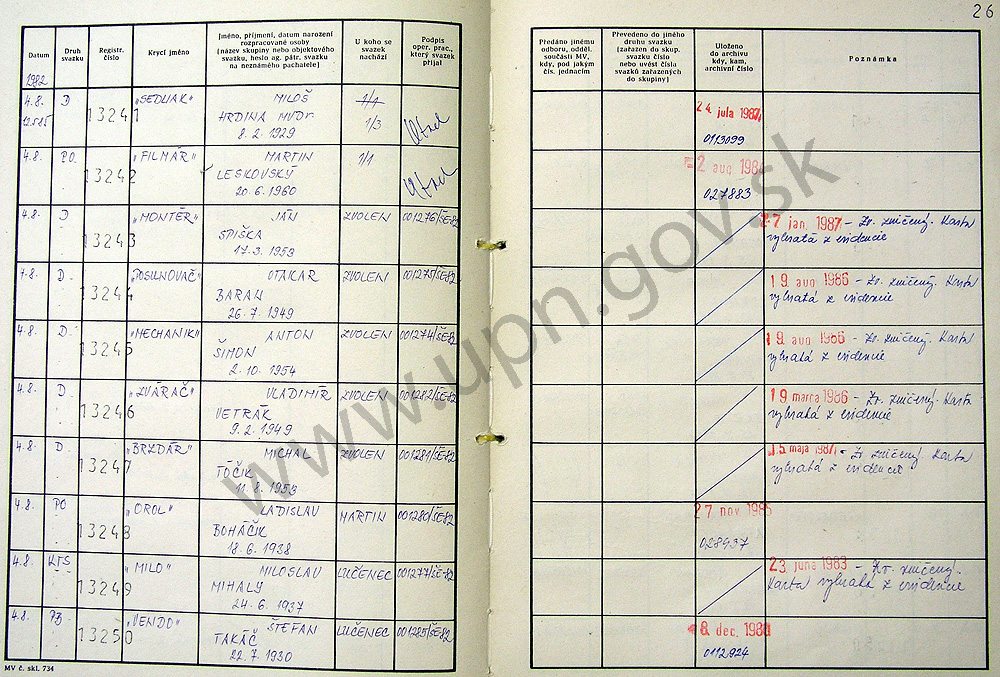 26
Datum
Druh svazku
Registr. číslo
Krycí jméno
Jméno, příjmení, datum narození rozpracované osoby (název skupiny nebo objektového svazku, heslo ag. pátr. svazku na neznámého pachatele)
U koho se svazek nachází
Podpis oper. prac., který svazek přijal
Předáno jinému odboru, odděl. součásti MV, kdy, pod jakým čís. jednacím
Převedeno do jiného druhu svazku (zařazen do skup. svazku číslo nebo uvést čísla svazků zařazených do skupiny)
Uloženo do archivu kdy, kam, archivní číslo
Poznámka
1982
4.8. D 13241 „SEDLIAK" MILOŠ 1/1
HRDINA MVDr. 1/3
8. 2. 1929
24. jula 1987
0113099
4.8. PO 13242 „FILMÁŘ" MARTIN 1/1
LESKOVSKÝ
20. 6. 1960
2 aug 198
027883
4.8. D 13243 „MONTÉR" JÁN ZVOLEN 001276/ŠE-82
SPIŠKA
17. 3. 1959
27 jan. 1987 - Zv. zničený. Karta
vybratá z evidencie
4.8. D. 13244 „POSUNOVAČ" OTAKAR ZVOLEN 001275/ŠE-82
BARAN
26. 7. 1949
19. aug 1986 - Zv. zničený. Karta
vybratá z evidencie
4.8. D. 13245 „MECHANIK" ANTON ZVOLEN 001274/ŠE-82
ŠIMON
2. 10. 1954
19. aug 1986 - Zv. zničený. Karta
vybratá z evidencie
4.8. D. 13246 „ZVÁRAČ" VLADIMÍR ZVOLEN 001282/ŠE-82
VETRÁK
9. 2. 1949
19 marca 1986 - Zv. zničený. Karta
vybratá z evidencie
4.8. D. 13247 „BRZDÁR" MICHAL ZVOLEN 001281/ŠE-82
TÓČIK
11. 8. 1953
15 maja 1987 - Zv zničený Karta
vybratá z evidencie
4.8. PO 13248 „OROL" LADISLAV MARTIN 001280/ŠE-82
BOHÁČIK
18. 6. 1938
27 nov. 1985
028937
4.8. KTS 13249 „MILO" MILOSLAV LUČENEC 001277/ŠE-82
MIHALY
24. 6. 1937
23. júna 1983 - Zv. zničený.
Karta vybratá z evidencie
4.8. 13250 „VENDO" ŠTEFAN LUČENEC 001285/ŠE-82
TAKÁČ
22. 7. 1930
8. dec. 198
0112924
MV č. skl. 734
www.upn.gov.sk